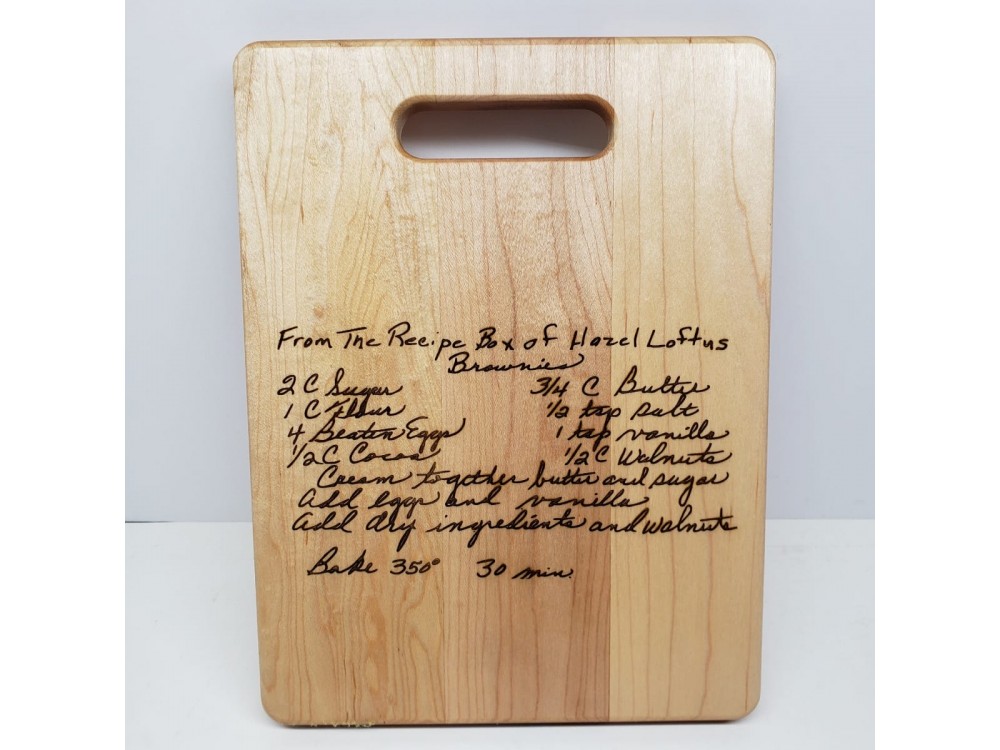 From The Recipe Box of Hazel Loftus
Brownies
2 C Sugar 3/4 C Butter
1 C Flour 1/2 tsp salt
4 Beaten Eggs 1 tsp vanilla
1/2 C Cocoa 1/2 C Walnuts
Cream together butter and sugar
Add eggs and vanilla
Add dry ingredients and walnuts
Bake 350° 30 min.